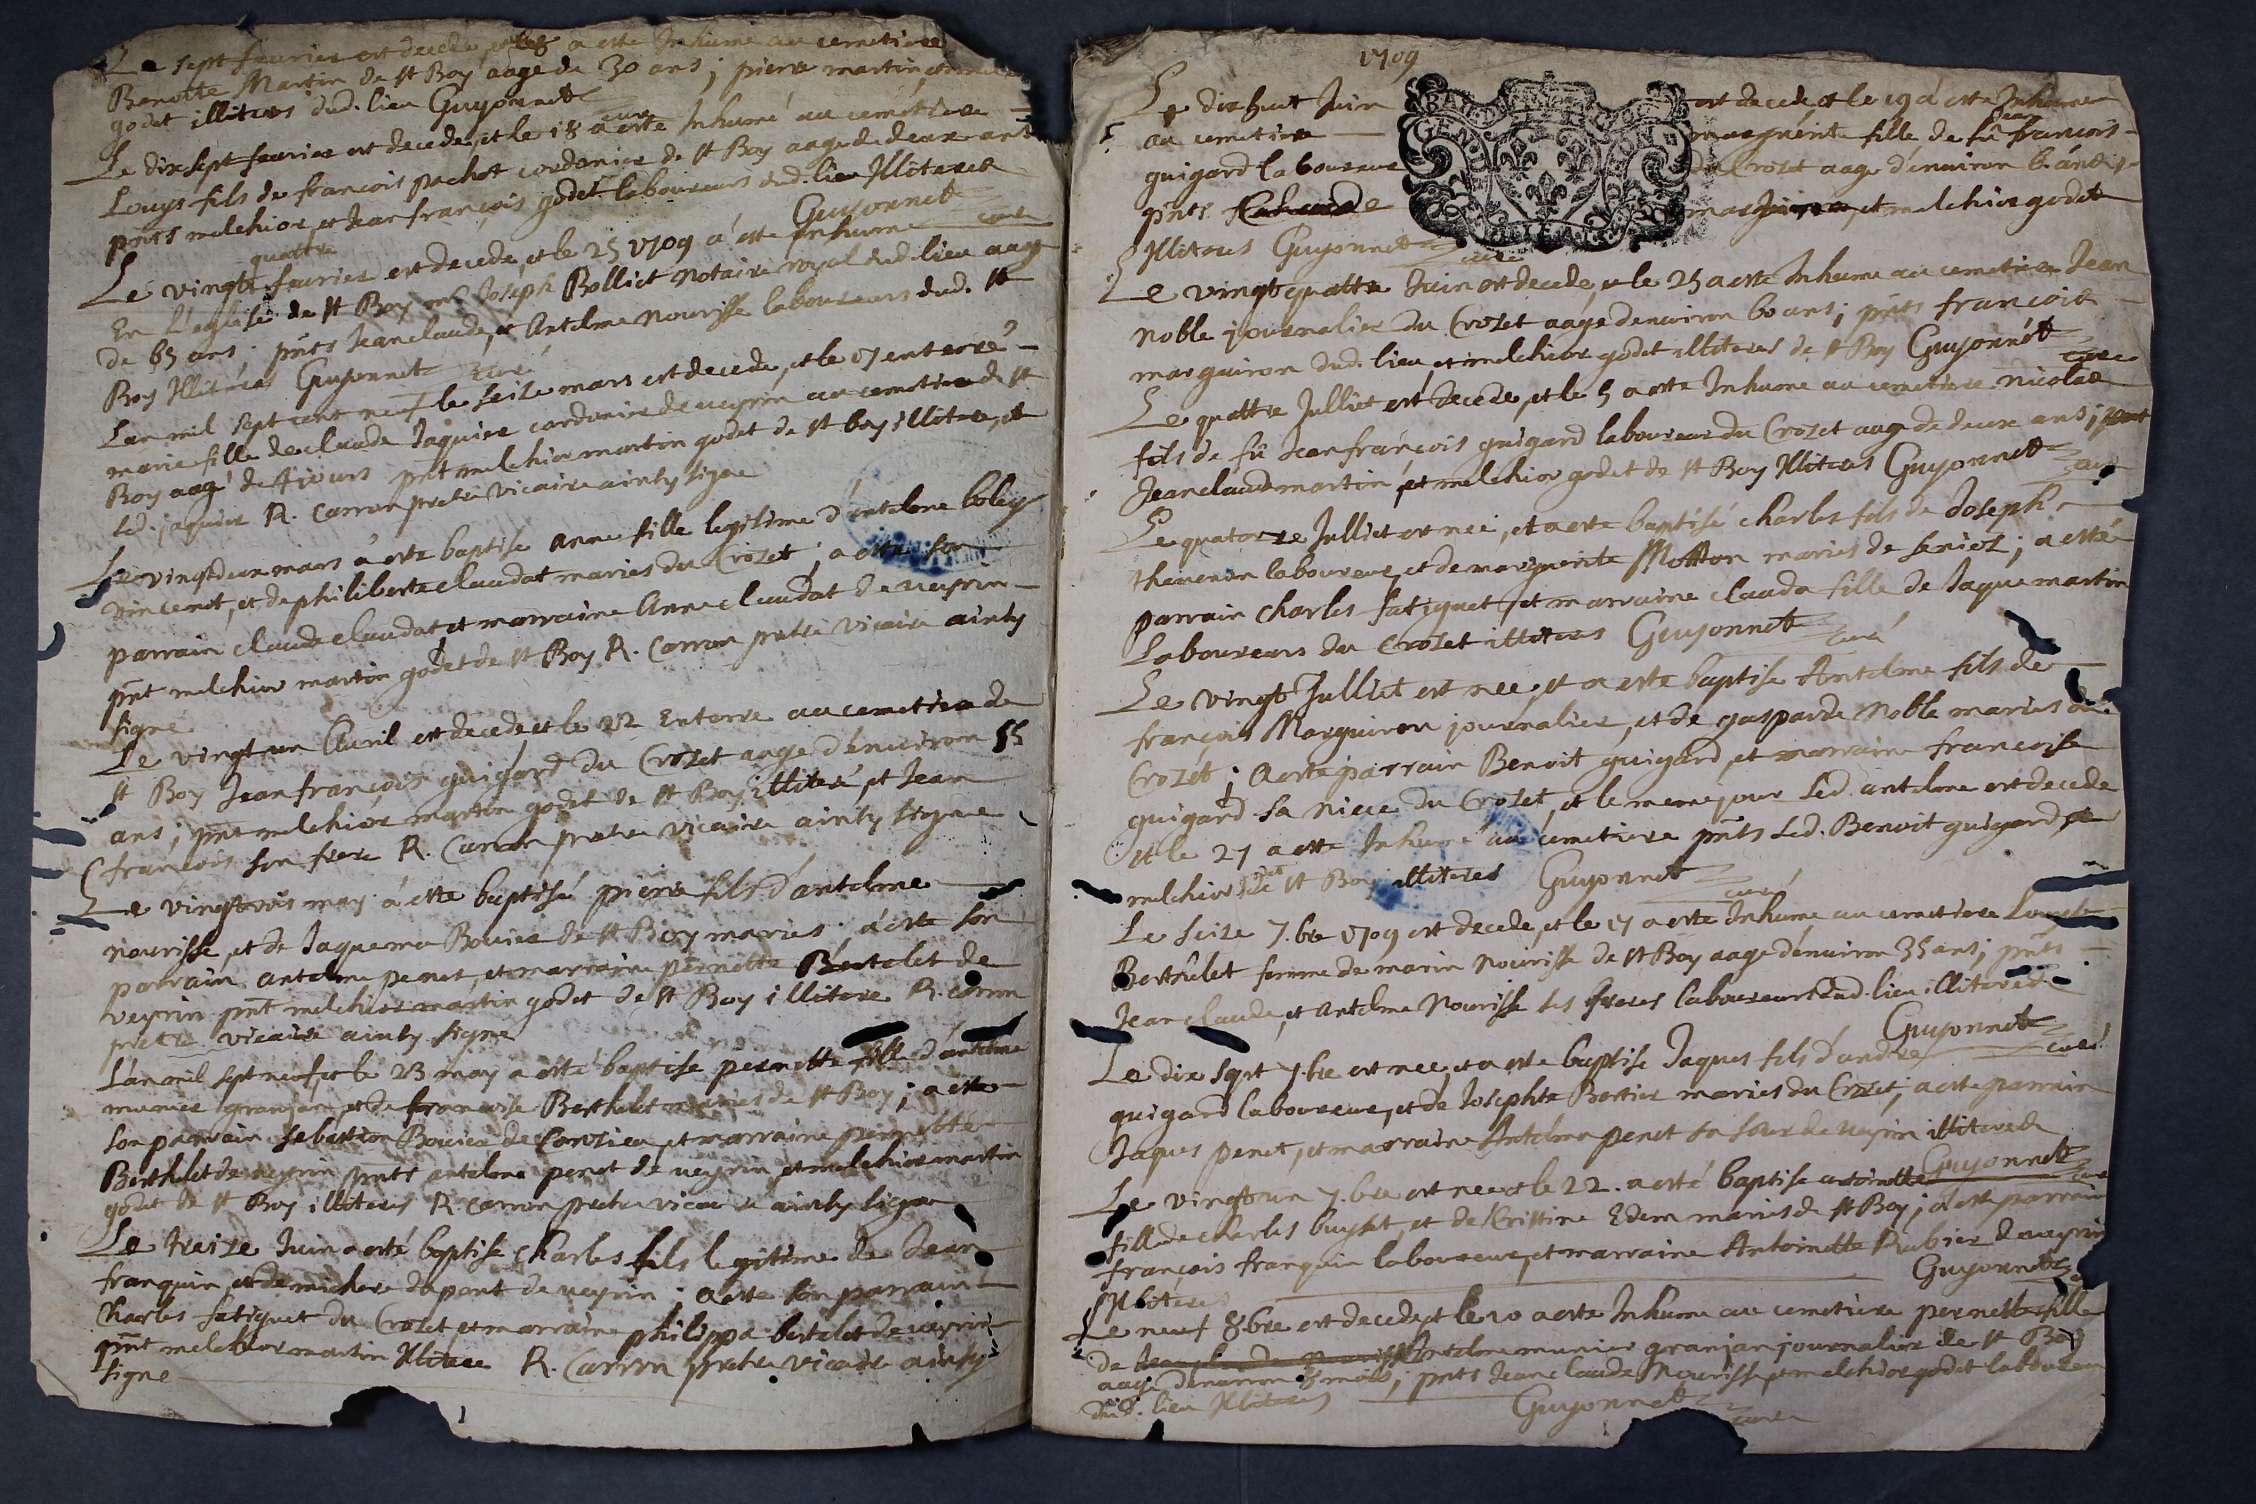 Le sept feurier est decede, et le 8 a esté Inhumé au cemetiere
Benoite Martin de st Boy aagé de 30 ans; pierre martin
godet illiteres dud. lieu Guyonnet curé
Le dix sept feurier est decede, et le 18 a esté Inhumé au cemetiere
Louys fils de francois pachot cordonier de st Boy aage de deux ans
pnts melchior, et Jean françois godet laboureurs dud. lieu Illiteres
Guyonnet curé
quattre
Le vingt feurier est decede, et le 25 1709 a esté Inhumé
En L'eglise de st Boy mc Joseph Bolliet Notaire royal dud. lieu aagé
de 65 ans; pnts Jean claude, et Antelme Nourisse laboureurs dud. st
Boy Illiteres Guyonnet curé
Lan mil sept cent neuf le seise mars est decede, et le 17 enterré
marie fille de claude Jaquier cordonier de ueyrin au cemetiere de st
Boy aagé de 4 jours pnt melchior martin godet de st boy illitere, et
led. jaquier R. Carron pretre vicaire ainsy signe
Le vingt deux mars à esté baptise anne fille legitime d'antelme boley
vincenot, et de philiberte claudat maries du Crozet; a esté son
parrain claude claudat et marraine Anne claudat de ueyrin
pnt melchior martin godet de st Boy R. Carron pretre vicaire ainsy
signe
Le vingt un Auril est decede et le 22 Enterre au cemetiere de
st Boy Jean françois guigard du Crozet aage d'enuiron 55
ans; pnt melchior martin godet de st Boy illiteré, et Jean
francois son frere R. Carron pretre vicaire ainsy signe
Le vingt trois may à esté baptisé pierre fils d'antelme
nourisse, et de Jaquema Bouier de st Boy maries. à esté son
parrain antelme penet, et marraine pernette Bertelet de
veyrin pnt melchior martin godet de st Boy illitere R. carron
pretre vicaire ainsy signe
L'an mil sept neuf, et le 23 may a esté baptise pernette fille d'antelme
munier granjan, et de francoise Berthelet maries de st Boy; a esté
son parrain sebastien Bouier de Corzieu, et marraine pernette
Berthelet de ueyrin pnts antelme penet de ueyrin, et melchior martin
godet de st Boy illiteres R. carron pretre vicaire ainsy signe
Le treize Juin a esté baptise charles fils legitime de Jean
franquin, et de michere dupont de ueyrin. a esté son parrain
Charles fatiguet du Crozet, et marraine philippa bertelet de ueyrin
pnt melchior martin Illitere R. Carron pretre vicaire ainsy
signe
1709
Le dix huit Juin est decede, et le 19 à esté Inhumé
au cemetiere marguerite fille de fû Jean francois
guigard laboureur du Crozet aage d'enuiron 6 ans;
pnts et melchior godet
Illiteres Guyonnet curé
Le vingt quattre Juin est decede, et le 25 a esté Inhumé au cemetiere Jean
Noble journalier du Crozet aage denuiron 60 ans; pnts francois
marguiron dud. lieu, et melchior godet illiteres de st Boy Guyonnét curé
Le quattre Julliet est decede, et le 5 a esté Inhume au cemetiere nicolas
fils de fû Jean françois guigard laboureur du Crozet aage de deux ans; pnt
Jean claude martin, et melchior godet de st Boy Illiteres Guyonnet curé
Le quatorze Julliet est neé, et a esté baptisé charles fils de Joseph
theuenon laboureur, et de marguerite Motton maries de seniez; a esté
parrain charles fatiguet, et marraine clauda fille de Jaque martin
Laboureurs du Crozet illiteres Guyonnet curé
Le vingt Julliet est nee, et a esté baptise Antelme fils de
françois Marguiron journalier, et de gasparde Noble maries du
Crozet; a esté parrain Benoit guigard, et marraine francoise
guigard sa niece du Crozet, et le meme jour led. antelme est decede
et le 21 a esté Inhume au cemetiere pnts led. Benoit guigard, et
melchior godet de st Boy illiteres Guyonnet curé
Le seize 7.bre 1709 est decede, et le 17 a esté Inhumé, au cemetiere Louyse
Berthelet femme de marin nourisse de st Boy aage d'enuiron 35 ans; pnts
Jean claude, et antelme Nourisse ses freres laboureurs dud. lieu illiteres
Guyonnet curé
Le dix sept 7.bre est nee, et a esté baptise Jaques fils d'andre
guigard laboureur, et de Josephte Bertier maries du Crozet; a esté parrain
Jaques penet, et marraine Antelma penet sa sœur de ueyrin illiteres
Guyonnet curé
Le vingt un 7.bre est nee et le 22. a esté baptise antoinette
fille de charles buyset, et de Cristine Edem maries de st Boy; a esté parrain
françois franquin laboureur, et marraine Antoinette Rubier de ueyrin
Illiteres Guyonnet
Le neuf 8.bre est decede, et le 10 a esté Inhume au cemetiere pernette fille
de Antelme munier granjan journalier de st Boy
aage denuiron 8 mois; pnts Jean claude Nourisse, et melchior godet laboureurs
dud. lieu Illiteres Guyonnet curé